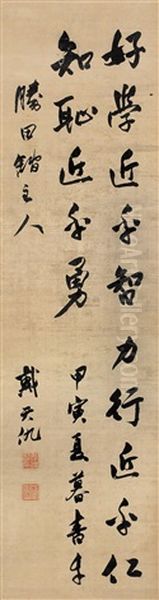 好學近乎智力行近乎仁
知恥近乎勇
甲寅夏暮書
勝田館主人
戴天仇